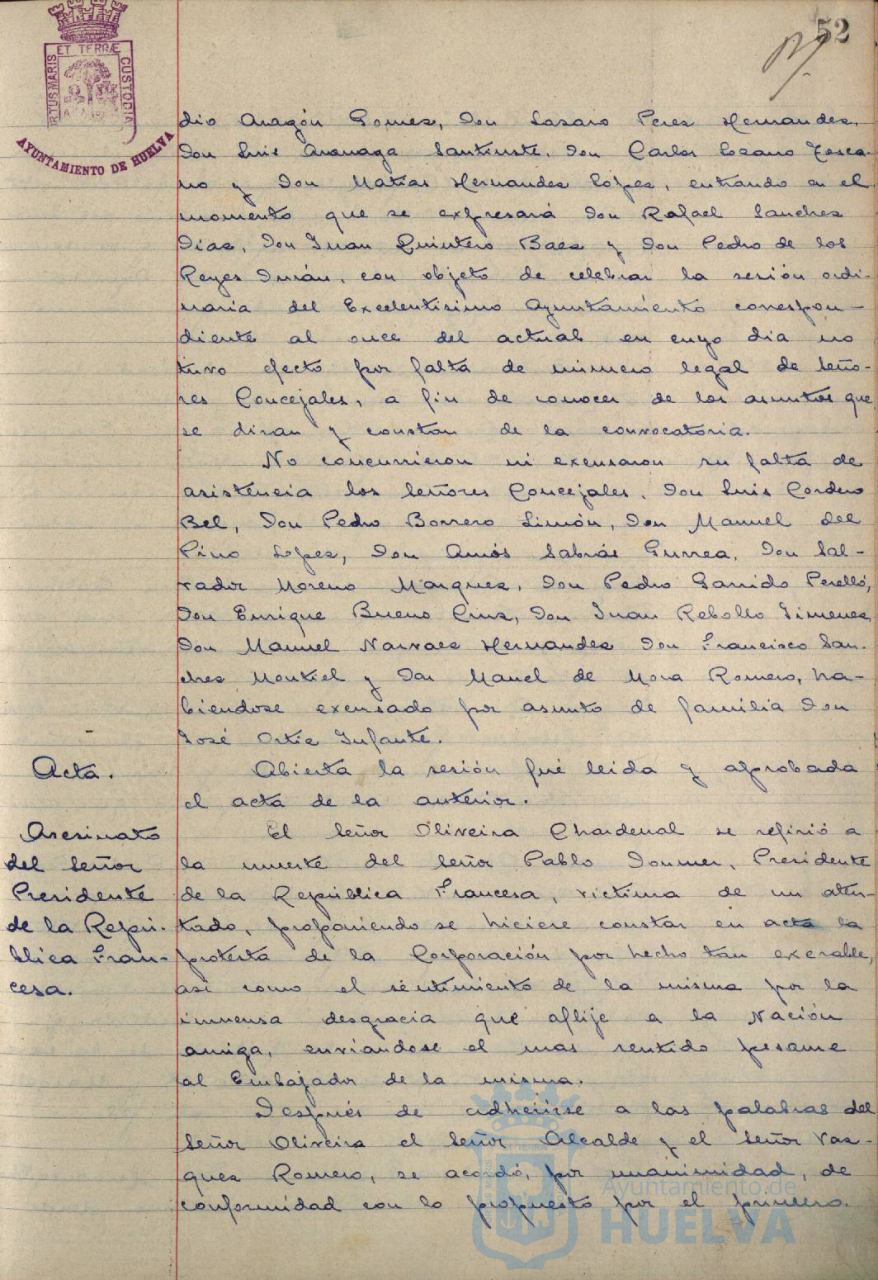 52
PORTUS MARIS ET TERRÆ CUSTODIA
AYUNTAMIENTO DE HUELVA
dio Aragón Gomez, Don Lazaro Perez Hernandez,
Don Luis Aranaga Santiuste, Don Carlos Lozano Tosca-
no y Don Matias Hernandez López, entrando en el
momento que se expresará Don Rafael Sanchez
Diaz, Don Juan Quintero Baez y Don Pedro de los
Reyes Durán, con objeto de celebrar la sesión ordi-
naria del Excelentisimo Ayuntamiento correspon-
diente al once del actual en cuyo dia no
tuvo efecto por falta de número legal de Seño-
res Concejales, a fin de conocer de los asuntos que
se diran y constan de la convocatoria.
No concurrieron ni excusaron su falta de
asistencia los Señores Concejales, Don Luis Cordero
Bel, Don Pedro Borrero Limón, Don Manuel del
Pino Lopez, Don Amós Sabrás Gurrea, Don Sal-
vador Moreno Marquez, Don Pedro Garrido Perelló,
Don Enrique Bueno Cruz, Don Juan Rebollo Jimenez,
Don Manuel Narvaez Hernandez Don Francisco San-
chez Montiel y Don Manel de Mora Romero, ha-
biendose excusado por asunto de familia Don
José Ortiz Infante.
Acta.
Abierta la sesión fué leida y aprobada
el acta de la anterior.
Asesinato
del Señor
Presidente
de la Repú-
blica Fran-
cesa.
El Señor Oliveira Chardenal se refirió a
la muerte del Señor Pablo Doumer, Presidente
de la República Francesa, victima de un aten-
tado, proponiendo se hiciere constar en acta la
protesta de la Corporación por hecho tan execrable,
asi como el sentimiento de la misma por la
inmensa desgracia que aflije a la Nación
amiga, enviandose el mas sentido pesame
al Embajador de la misma.
Después de adherirse a las palabras del
Señor Oliveira el Señor Alcalde y el Señor Vaz-
quez Romero, se acordó, por unanimidad, de
conformidad con lo propuesto por el primero.
Ayuntamiento de
HUELVA